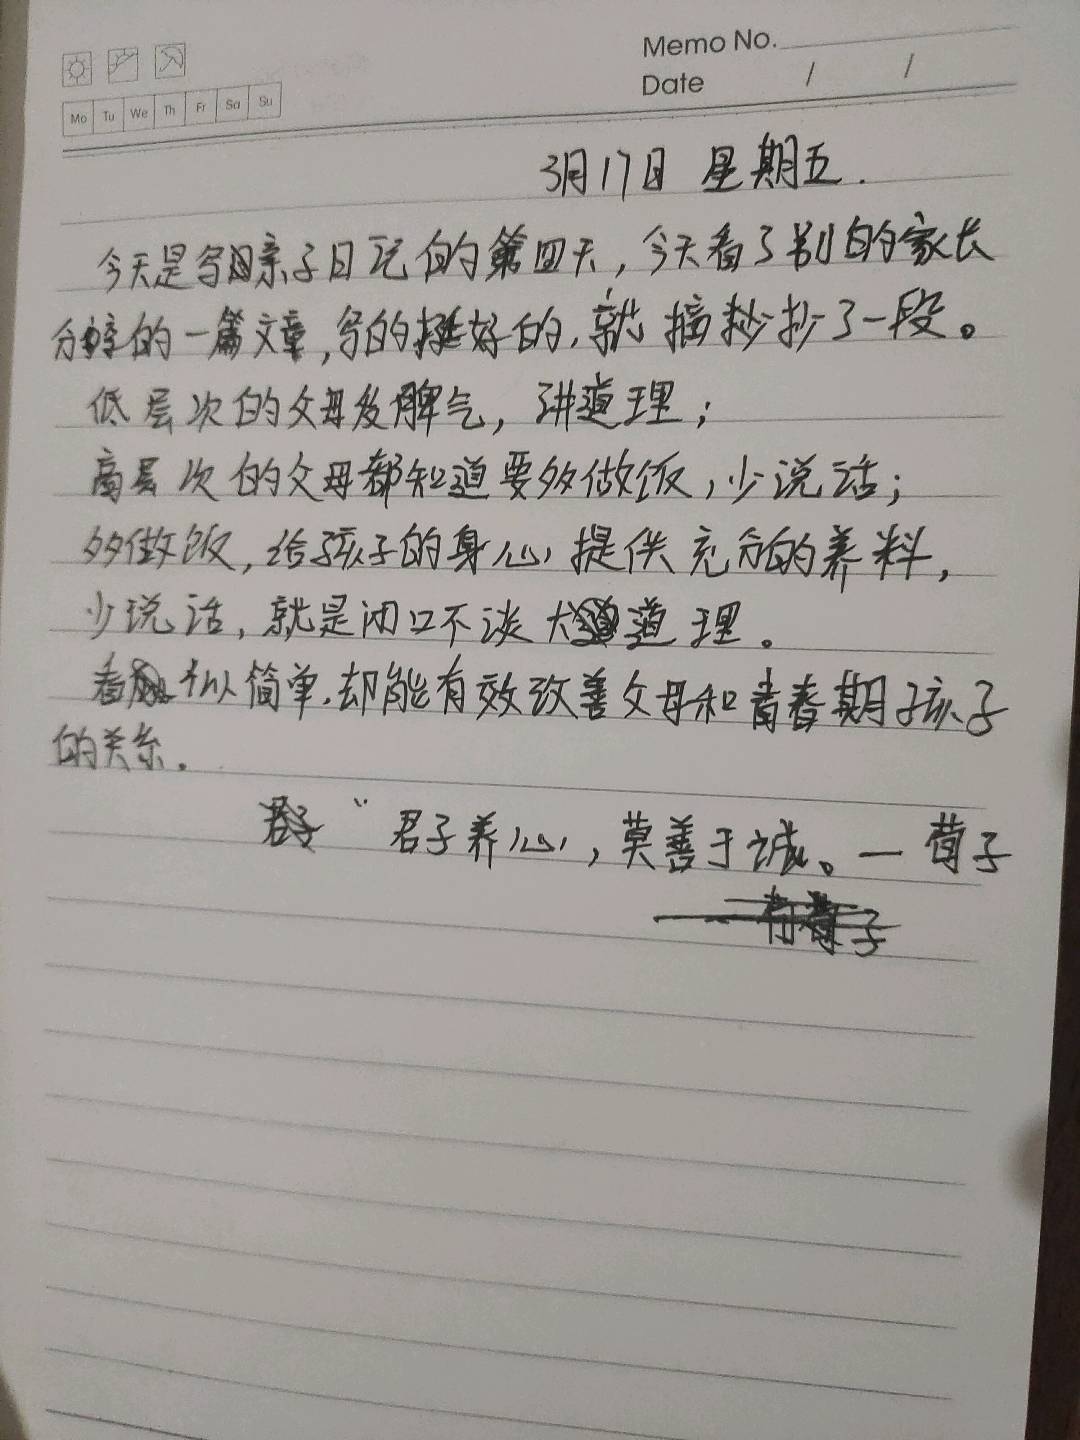 Memo No.
Date / /
Mo Tu We Th Fr Sa Su
3月17日 星期五.
今天是写亲子日记的第四天，今天看了别的家长
分享的一篇文章，写的挺好的，就摘抄抄了一段。
低层次的父母发脾气，讲道理；
高层次的父母都知道要多做饭，少说话；
多做饭，给孩子的身心提供充分的养料，
少说话，就是闭口不谈大道理。
看似简单，却能有效改善父母和青春期孩子
的关系。
君子 “ 君子养心，莫善于诚。— 荀子